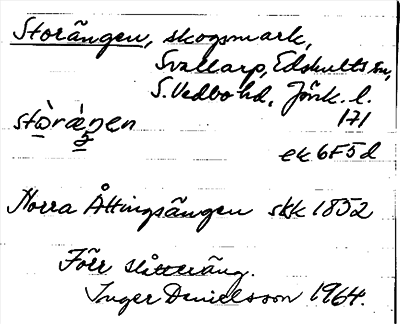 Storängen, skogsmark,
Svallarp, Edshults sn,
S. Vedbo hd, Jönk. l.
171
stòràŋen
ek 6F5d
Norra Åttingsängen skk 1852
Förr slåtteräng.
Inger Danielsson 1964.